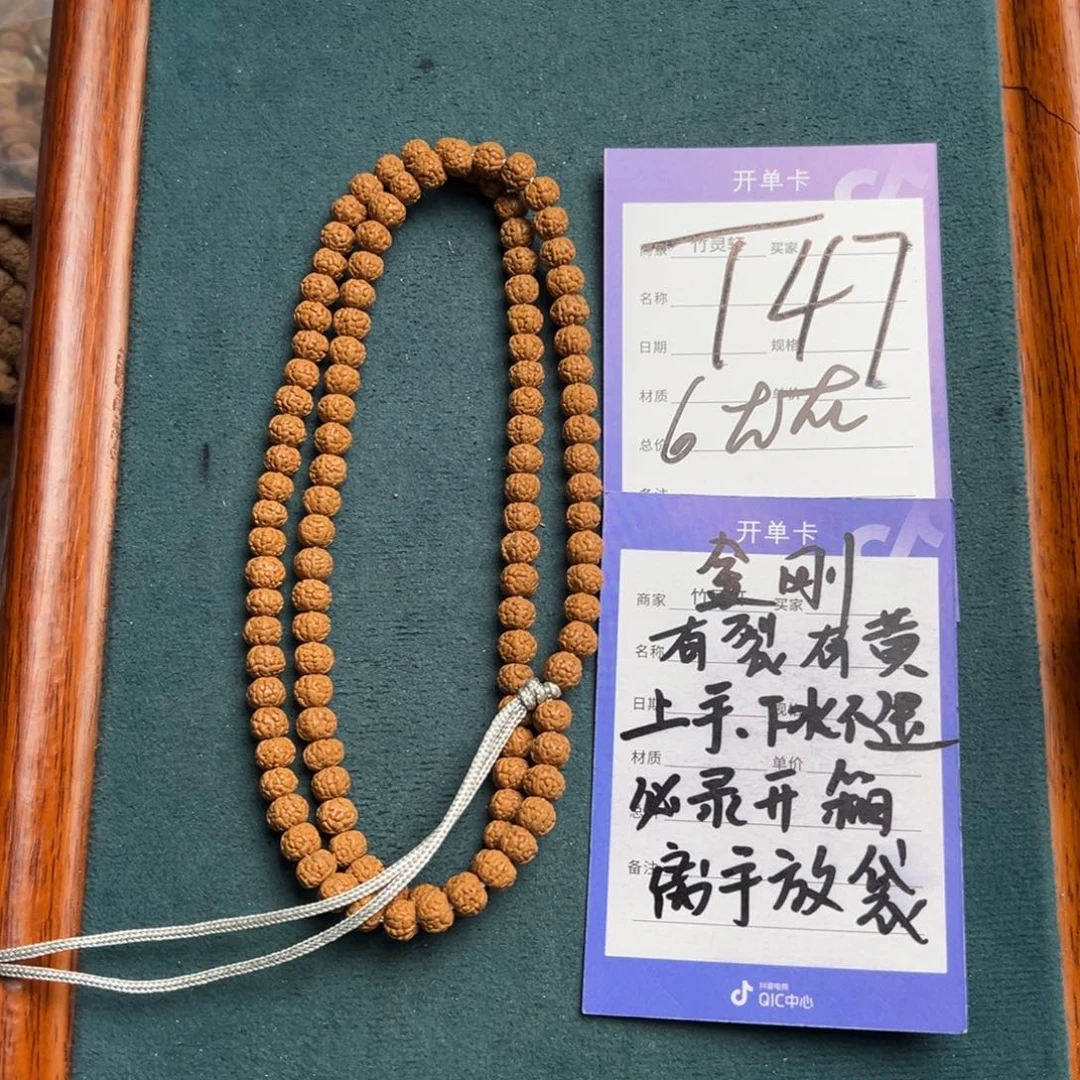 开单卡
商家 竹灵轩 买家
T47
名称
日期 规格
材质 单价
6左右
总价
备注
开单卡
金刚
商家 竹 买家
有裂有黄
名称
上手、下水不退
日期
材质 单价
必录开箱
离手放袋
备注
抖音电商
QIC中心